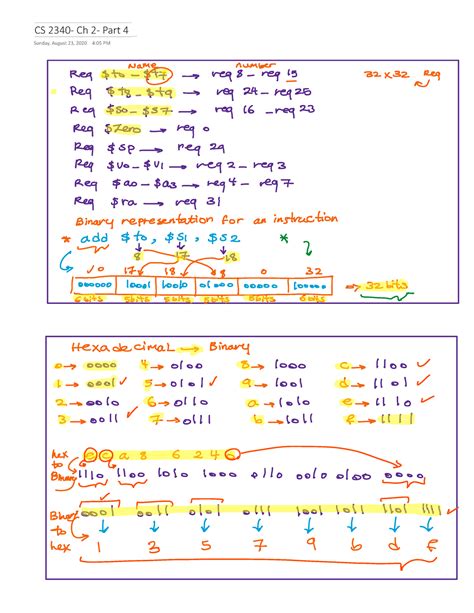 CS 2340- Ch 2- Part 4
Sunday, August 23, 2020 4:05 PM
Name number
Reg $t0 - $t7 → reg 8 - reg 15 32x32 Reg
Reg $t8 - $t9 → reg 24 - reg 25
Reg $s0 - $s7 → reg 16 - reg 23
Reg $Zero → reg 0
Reg $SP → reg 29
Reg $v0 - $v1 → reg 2 - reg 3
Reg $a0 - $a3 → reg 4 - reg 7
Reg $ra → reg 31
Binary representation for an instruction
* add $t0, $s1, $s2 *
8 17 18
0 17 18 8 0 32
000000 10001 10010 01000 00000 100000 → 32 bits
6bits 5bits 5bits 5bits 5bits 6bits
Hexadecimal → Binary
0 → 0000 4 → 0100 8 → 1000 c → 1100 ✓
1 → 0001 ✓ 5 → 0101 ✓ 9 → 1001 d → 1101 ✓
2 → 0010 6 → 0110 a → 1010 e → 1110 ✓
3 → 0011 ✓ 7 → 0111 b → 1011 f → 1111
hex e c a 8 6 2 4 0
to
Binary 1110 1100 1010 1000 0110 0010 0100 0000
Binary 0001 0011 0101 0111 1001 1011 1101 1111
to
hex 1 3 5 7 9 b d f